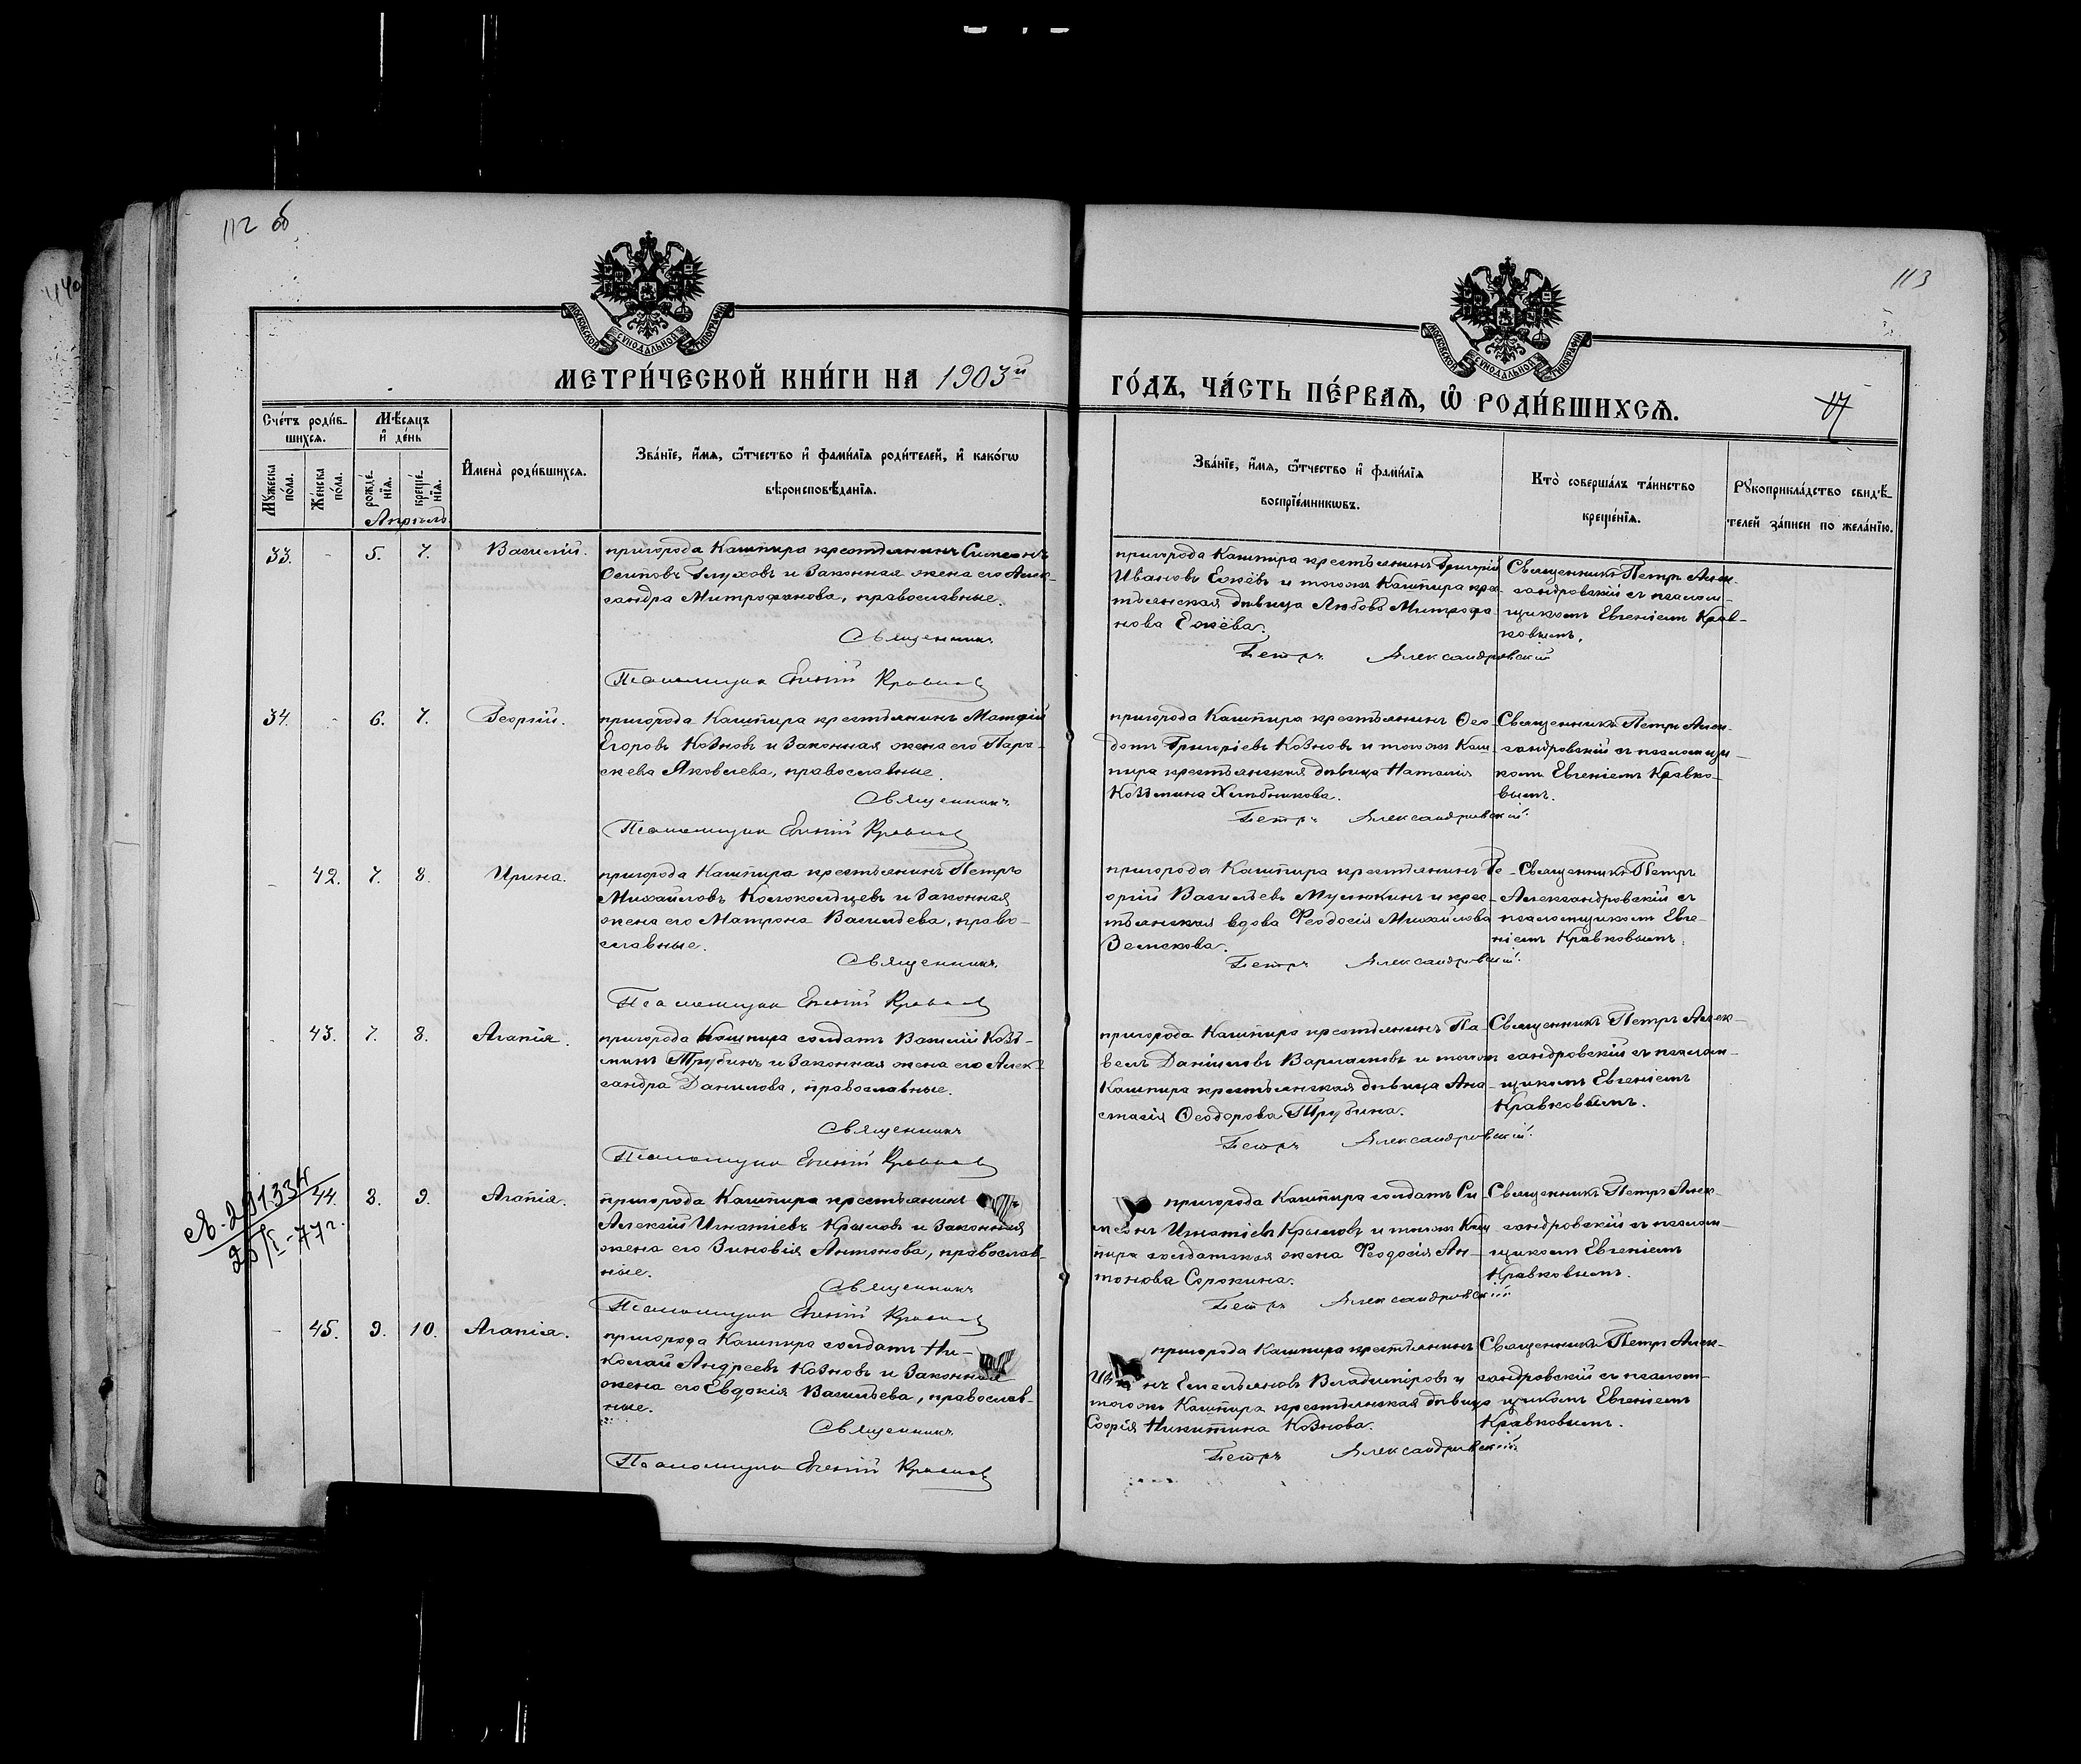 112 об
113
МОСКОВСКОЙ СѴНОДАЛЬНОЙ ТИПОГРАФІИ
МОСКОВСКОЙ СѴНОДАЛЬНОЙ ТИПОГРАФІИ
МЕТРИ́ЧЕСКОЙ КНИ́ГИ НА 1903й
ГО́ДЪ, ЧА́СТЬ ПЕ́РВАѦ, Ѡ РОДИ́ВШИХСѦ.
Сче́тъ роди́в-
шихсѧ.
Мѣ́сѧцъ
и де́нь
Мꙋ́жеска
по́ла.
Же́нска
по́ла.
рожде́-
нїѧ.
креще́-
нїѧ.
Апрѣль
Имена̀ роди́вшихсѧ.
Зва́нїе, и́мѧ, ѻ҆́тчество и фами́лїѧ роди́телей, и како́гѡ
вѣроисповѣ́данїѧ.
Зва́нїе, и́мѧ, ѻ҆́тчество и фами́лїѧ
воспрїе́мникѡвъ.
Кто̀ соверша́лъ та́инство
креще́нїѧ.
Рꙋкоприкла́дство свидѣ́-
телей за́писи по жела́нїю.
33. - 5. 7. Василій.
пригорода Кашпира крестьянинъ Симеонъ
Осиповъ Глуховъ и законная жена его Алек-
сандра Митрофанова, православные.
Священникъ
Псаломщикъ Евгеній Кравковъ
пригорода Кашпира крестьянинъ Григорій
Ивановъ Ежёвъ и тогожъ Кашпира кре-
стьянская дѣвица Любовь Митрофа-
нова Ежёва.
Петръ Александровскій
Священникъ Петръ Алек-
сандровскій съ псалом-
щикомъ Евгеніемъ Крав-
ковымъ.
34. - 6. 7. Георгій.
пригорода Кашпира крестьянинъ Матфій
Егоровъ Козновъ и законная жена его Пара-
скева Яковлева, православные.
Священникъ
Псаломщикъ Евгеній Кравковъ
пригорода Кашпира крестьянинъ Ѳео-
дотъ Григоріевъ Козновъ и тогожъ Каш-
пира крестьянская дѣвица Наталія
Козьмина Хлѣбникова.
Петръ Александровскій.
Священникъ Петръ Алек-
сандровскій съ псаломщи-
комъ Евгеніемъ Кравко-
вымъ.
- 42. 7. 8. Ирина.
пригорода Кашпира крестьянинъ Петръ
Михайловъ Колокольцевъ и законная
жена его Матрона Васильева, право-
славные.
Священникъ.
Псаломщикъ Евгеній Кравковъ
пригорода Кашпира крестьянинъ Ге-
оргій Васильевъ Мулюкинъ и крес-
тьянская вдова Феодосія Михайлова
Земскова.
Петръ Александровскій.
Священникъ Петръ
Александровскій съ
псаломщикомъ Евге-
ніемъ Кравковымъ.
- 43. 7. 8. Агапія.
пригорода Кашпира солдатъ Василій Козь-
минъ Трубинъ и законная жена его Алек-
сандра Данилова, православные.
Священникъ
Псаломщикъ Евгеній Кравковъ
пригорода Кашпира крестьянинъ Па-
велъ Даніиловъ Варламовъ и тогожъ
Кашпира крестьянская дѣвица Ана-
стасія Ѳеодорова Трубина.
Петръ Александровскій.
Священникъ Петръ Алек-
сандровскій съ псалом-
щикомъ Евгеніемъ
Кравковымъ.
44. 8. 9. Агапія.
25/I-77г.
пригорода Кашпира крестьянинъ
Алексій Игнатіевъ Крыловъ и законная
жена его Зиновія Антонова, православ-
ные.
Священникъ
Псаломщикъ Евгеній Кравковъ
пригорода Кашпира солдатъ Си-
меонъ Игнатіевъ Крыловъ и тогожъ Каш-
пира солдатская жена Феодосія Ан-
тонова Сорокина.
Петръ Александровскій
Священникъ Петръ Алек-
сандровскій съ псалом-
щикомъ Евгеніемъ
Кравковымъ.
- 45. 9. 10. Агапія.
пригорода Кашпира солдатъ Ни-
колай Андреевъ Козновъ и законная
жена его Евдокія Васильева, православ-
ные.
Священникъ
Псаломщикъ Евгеній Кравковъ
пригорода Кашпира крестьянинъ
Емельяновъ Владиміровъ и
тогожъ Кашпира крестьянская дѣвица
Софія Никитина Кознова.
Петръ Александровскій
Священникъ Петръ Алек-
сандровскій съ псалом-
щикомъ Евгеніемъ
Кравковымъ.